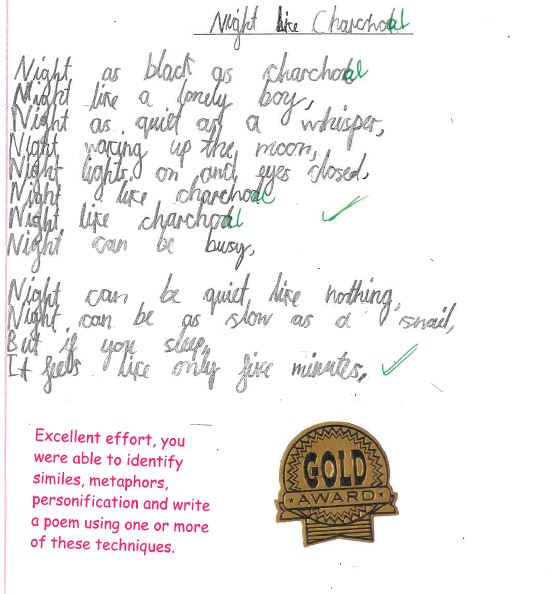 Night like Charchoal
Night as black as charchoal
Night like a lonely boy,
Night as quiet as a whisper,
Night waking up the moon,
Night lights on and eyes closed,
Night a like charchoal
Night like charchoal
Night can be busy,
Night can be quiet like nothing,
Night can be as slow as a snail,
But if you sleep,
It feels like only five minutes,
Excellent effort, you
were able to identify
similes, metaphors,
personification and write
a poem using one or more
of these techniques.
GOLD
AWARD